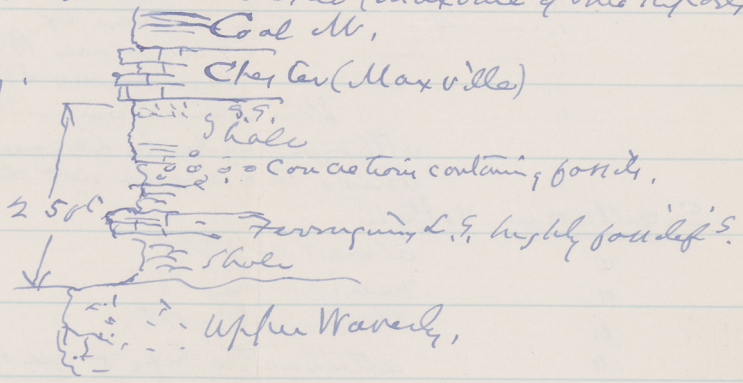 Coal M.
Chester (Maxville)
S.S.
Shale
Concretions containing fossils.
Ferruginous L.S. highly fossilif's.
Shale
Upper Waverly.